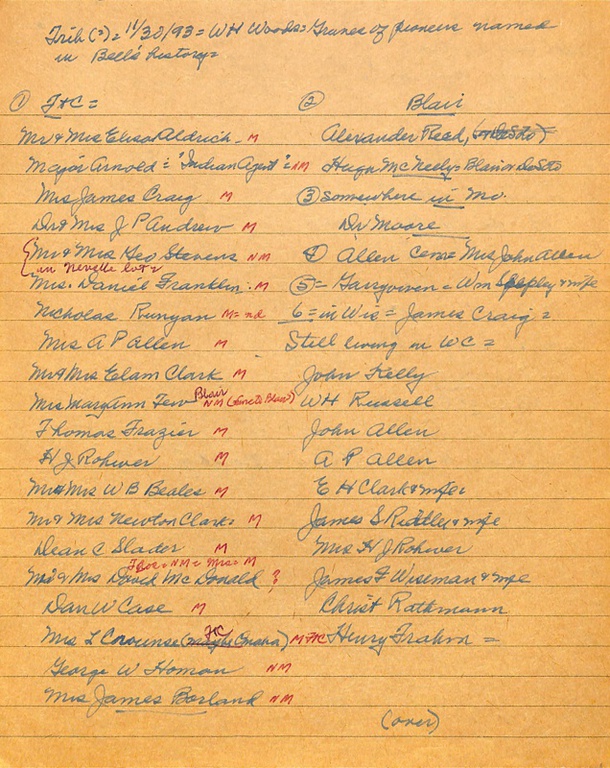 Trib (2) = 11/30/93 = WH Woods = Graves of pioneers named
in Bell's history =
① F+C =
Mr & Mrs Elisor Aldrich - M
Major Arnold = "Indian Agent" = NM
Mrs James Craig M
Dr & Mrs J P Andrew M
Mr & Mrs Geo Stevens NM
in Nevelle lot
Mrs. Daniel Franklin. M
Nicholas Runyan M = nd
Mrs A P Allen M
Mr & Mrs Elam Clark M
Mrs Mary Ann Blair NM
Thomas Frazier M
H J Rohwer M
Mr & Mrs W B Beales M
Mr & Mrs Newton Clark = M
Dean C Slader M
= NM = Mrs = M
Mr & Mrs David McDonald ?
Dan W Case M
Mrs L Crounse (maybe Omaha) F+C M F+C
George W Homan NM
Mrs James Borland NM
② Blair
Alexander Reed, (or DeSoto) =
Hugh McNeely = Blair or DeSoto
③ Somewhere in Mo.
Dr Moore
④ Allen Cem = Mrs John Allen
⑤ = = Wm & wife
6 = in Wis = James Craig =
Still living in WC =
John Kelly
WH Russell
John Allen
A P Allen
E H Clark & wife =
James S Riddley & wife
Mrs H J Rohwer
James F Wiseman & wife
Christ Rathmann
Henry Frahm =
(over)